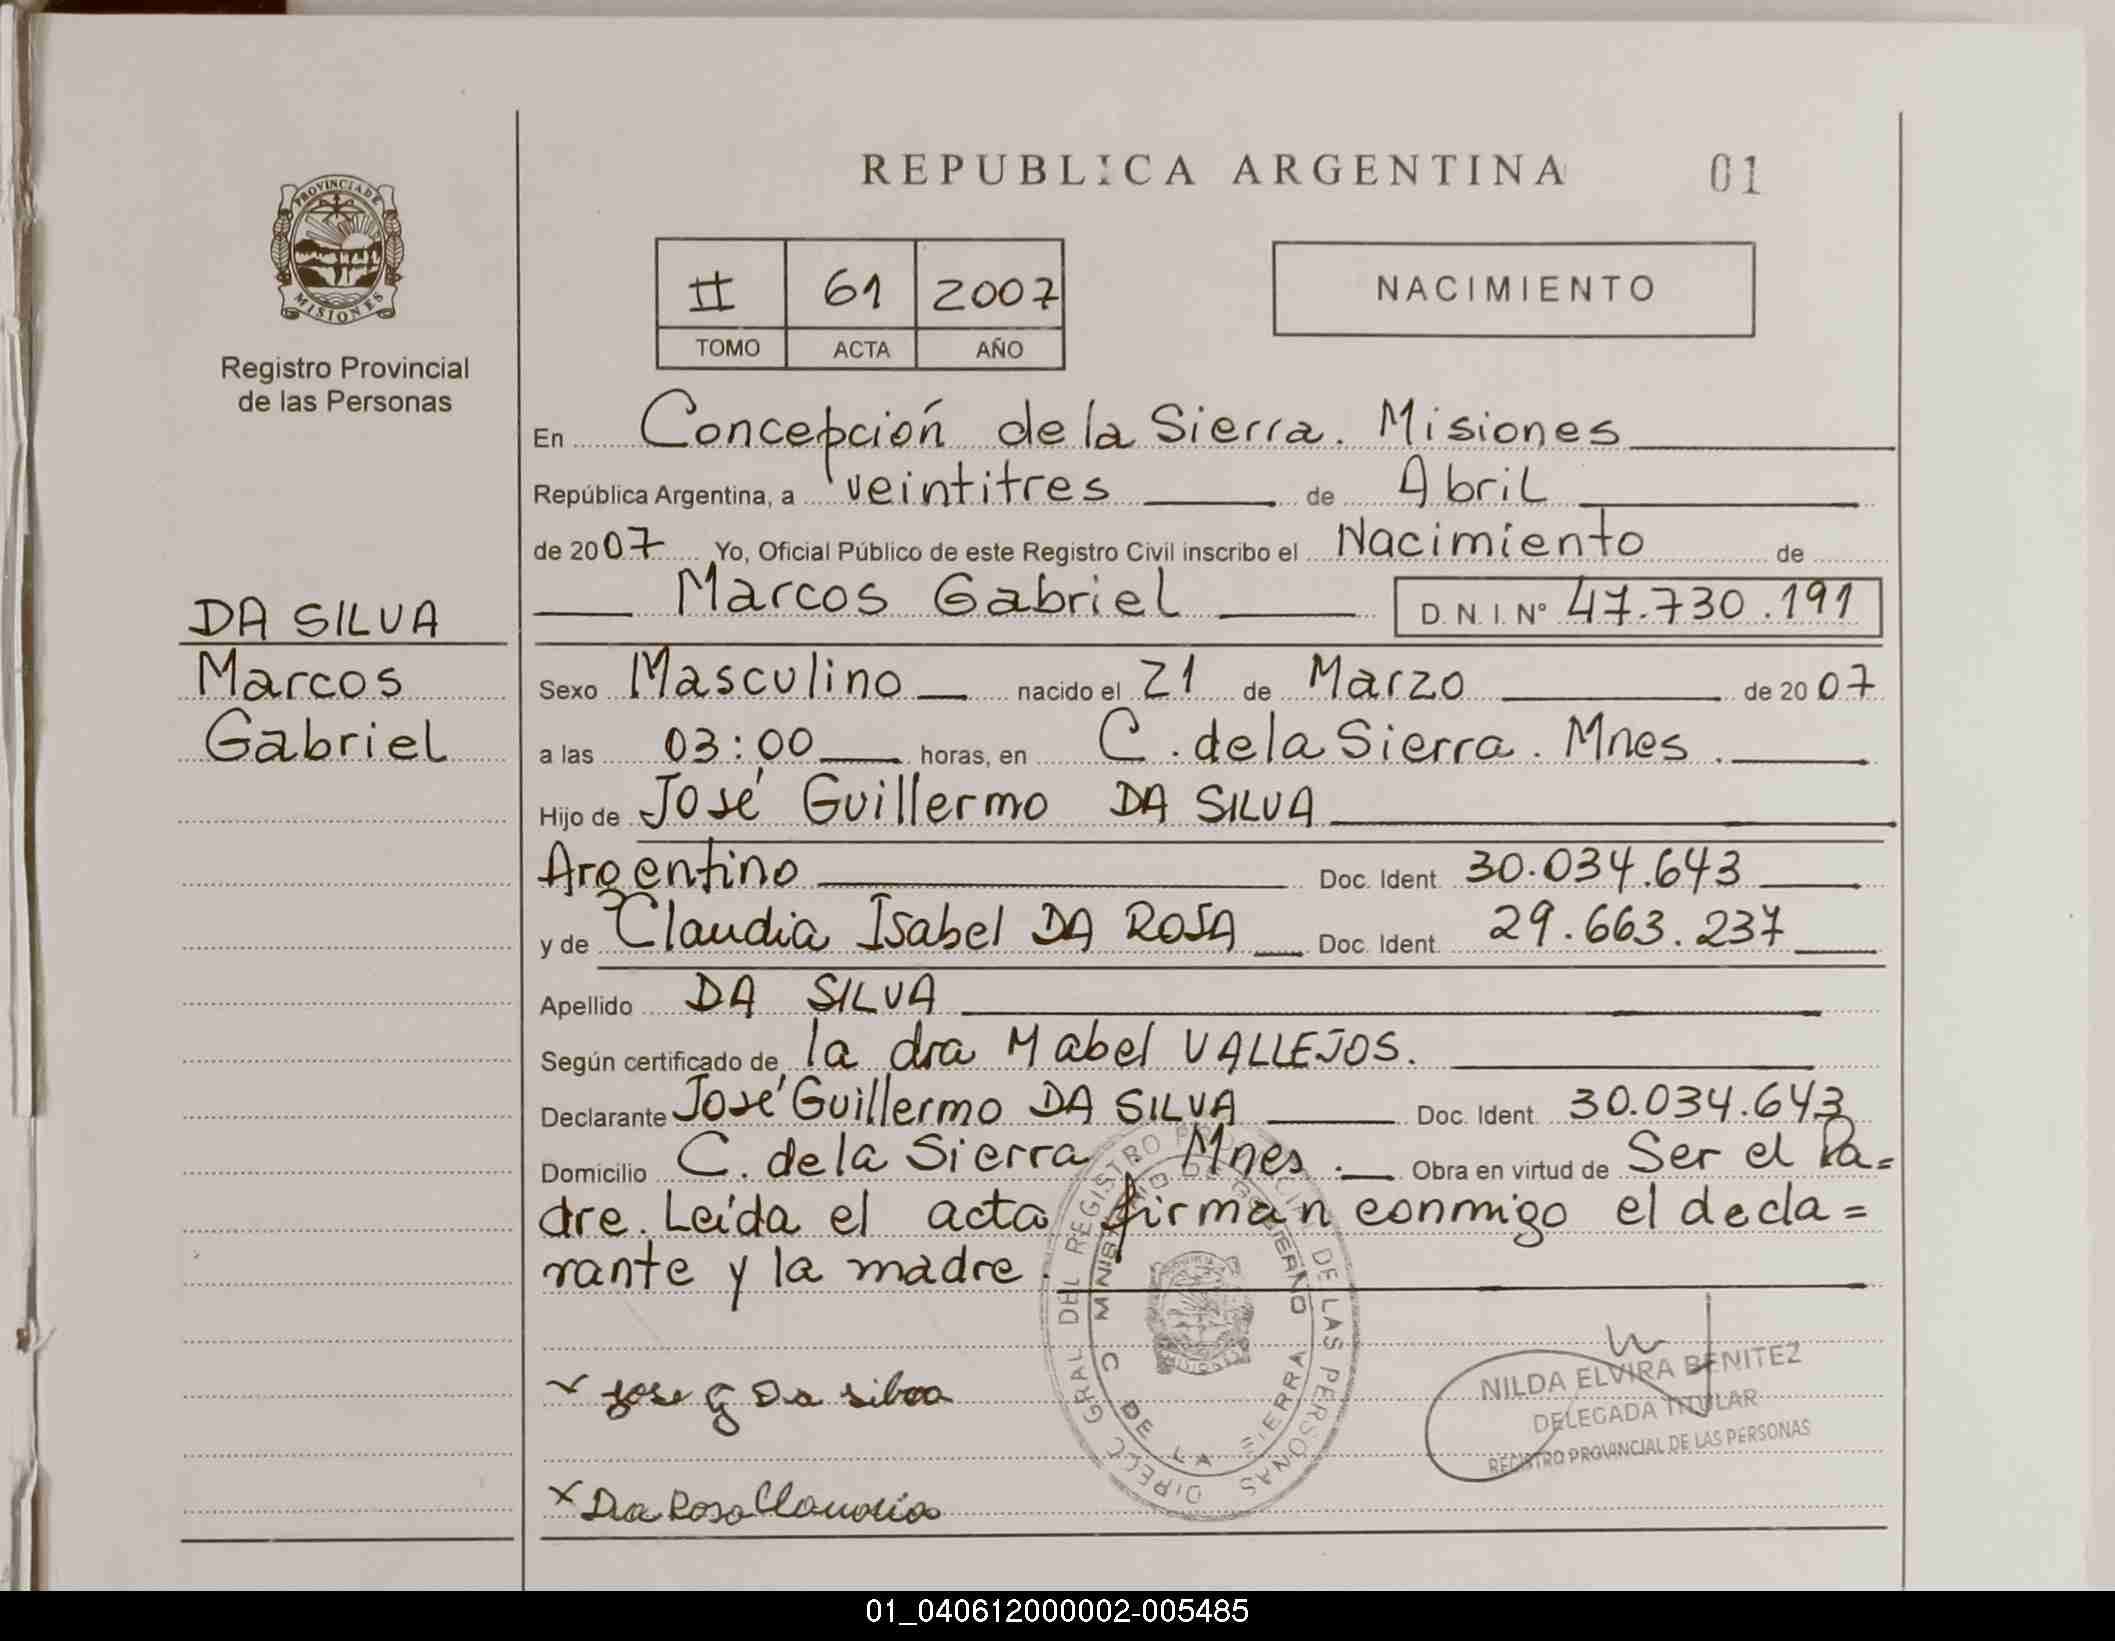 REPUBLICA ARGENTINA 01
PROVINCIA DE
MISIONES
Registro Provincial
de las Personas
II 61 2007
TOMO ACTA AÑO
NACIMIENTO
DA SILVA
Marcos
Gabriel
En Concepción de la Sierra. Misiones
República Argentina, a veintitres de Abril
de 2007 Yo, Oficial Público de este Registro Civil inscribo el Nacimiento de
Marcos Gabriel D.N.I. Nº 47.730.191
Sexo Masculino nacido el 21 de Marzo de 2007
a las 03:00 horas, en C. de la Sierra. Mnes.
Hijo de José Guillermo DA SILVA
Argentino Doc. Ident. 30.034.643
y de Claudia Isabel DA ROSA Doc. Ident. 29.663.237
Apellido DA SILVA
Según certificado de la dra Mabel VALLEJOS.
Declarante José Guillermo DA SILVA Doc. Ident. 30.034.643
Domicilio C. de la Sierra Mnes. Obra en virtud de Ser el Pa=
dre. Leída el acta firman conmigo el decla=
rante y la madre.
DIREC. GRAL DEL REGISTRO PROVINCIAL DE LAS PERSONAS
MINISTERIO DE GOBIERNO
C DE LA SIERRA
x Jose G Da silva
x Da Rosa Claudia
NILDA ELVIRA BENITEZ
DELEGADA TITULAR
REGISTRO PROVINCIAL DE LAS PERSONAS
01_040612000002-005485